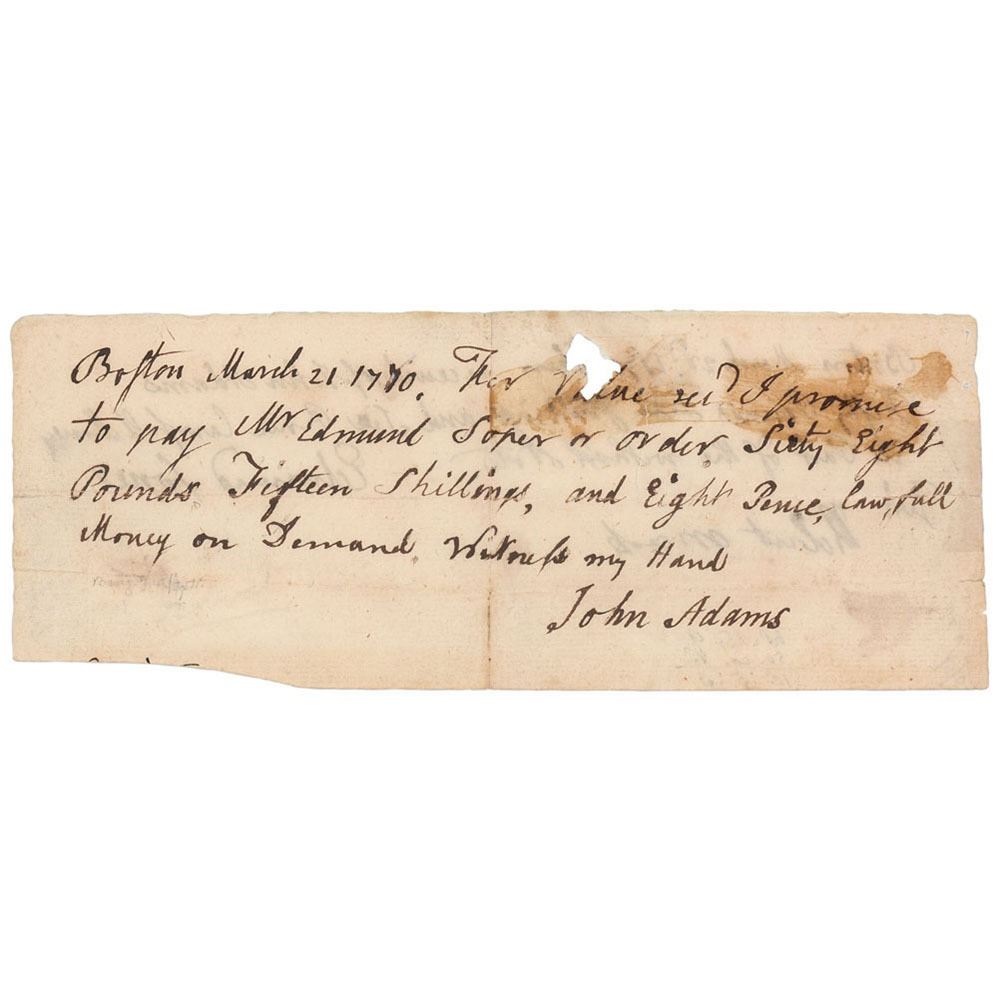 Boston March 21 1770. For Value recd I promise
to pay Mr Edmund Soper or order Sixty Eight
Pounds Fifteen Shillings, and Eight Pence, lawfull
Money on Demand. Witness my Hand
John Adams